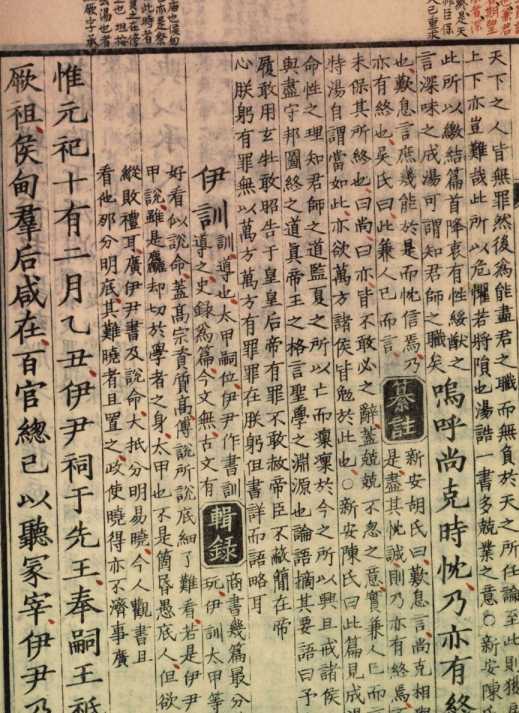 天下之人皆無罪然後為能盡君之職而無負於天之所任論至此則獲戾
上下亦豈難哉此所以危懼若將隕也湯誥一書多兢業之意○新安陳氏
此所以繳結篇首降衷有性綏猷之
言深味之成湯可謂知君師之職矣
嗚呼尚克時忱乃亦有終
也歎息言庶幾能於是而忱信焉乃
亦有終也吳氏曰此兼人已而言
纂註
新安胡氏曰歎息言尚克相
是盡其忱誠則乃亦有終焉
未保其終也曰尚曰亦皆不敢必之辭蓋兢兢不忽之意實兼人已而
特湯自謂當如此亦欲萬方諸侯皆勉於此也○新安陳氏曰此篇見成
命性之理知君師之道監夏之所以亡而凜凜於今之所以興且戒諸侯
與盡守邦圖終之道真帝王之格言聖學之淵源也論語摘其要語曰予
履敢用玄牡敢昭告于皇皇后帝有罪不敢赦帝臣不蔽簡在帝
心朕躬有罪無以萬方萬方有罪罪在朕躬但書詳而語略耳
伊訓
訓導也太甲嗣位伊尹作書訓
導之史錄為篇今文無古文有
輯録
商書幾篇最分
玩伊訓太甲等
好看似說命蓋高宗資質高傅說所說底細了難看若是伊尹
甲說雖是麤却切於學者之身太甲也不是箇昬愚底人但欲
縱敗禮耳廣伊尹書及說命大抵分明易曉今人觀書且
看他那分明底其難曉者且置之政使曉得亦不濟事廣
惟元祀十有二月乙丑伊尹祠于先王奉嗣王祗
厥祖侯甸羣后咸在百官緫已以聽冢宰伊尹乃